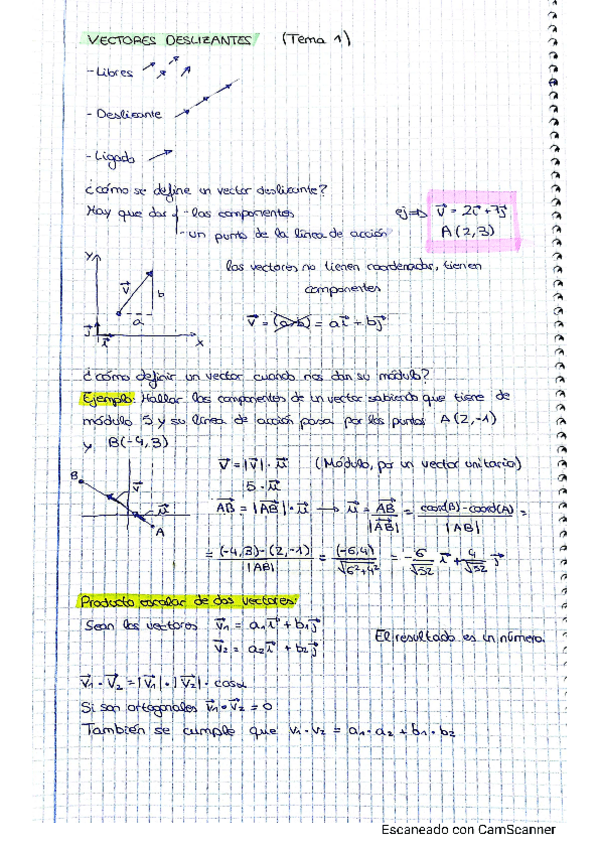 VECTORES DESLIZANTES (Tema 1)
- Libres
- Deslizante
- Ligado
¿cómo se define un vector deslizante?
Hay que dar { - las componentes
- un punto de la línea de acción
ej ⇒ v⃗ = 2i⃗ + 7j⃗
A(2,3)
los vectores no tienen coordenadas, tienen
componentes
y
v⃗
b
a
j⃗
i⃗
x
v⃗ = (a,b) = ai⃗ + bj⃗
¿cómo definir un vector cuando nos dan su módulo?
Ejemplo: Hallar las componentes de un vector sabiendo que tiene de
módulo 5 y su línea de acción pasa por los puntos A(2,-1)
y B(-4,3)
B
v⃗
u⃗
A
v⃗ = |v⃗| · u⃗ (Módulo, por un vector unitario)
5 · u⃗
AB⃗ = |AB⃗| · u⃗ → u⃗ = AB⃗/|AB⃗| = coord(B)-coord(A)/|AB| =
= (-4,3)-(2,-1)/|AB| = (-6,4)/√6²+4² = -6/√52 i⃗ + 4/√52 j⃗
Producto escalar de dos vectores:
Sean los vectores v⃗₁ = a₁i⃗ + b₁j⃗
v⃗₂ = a₂i⃗ + b₂j⃗
El resultado es un número.
v⃗₁ · v⃗₂ = |v⃗₁| · |v⃗₂| · cosα
Si son ortogonales v⃗₁ · v⃗₂ = 0
También se cumple que v₁ · v₂ = a₁ · a₂ + b₁ · b₂
Escaneado con CamScanner